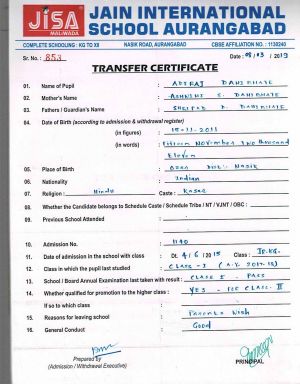 JISA
MALIWADA
JAIN INTERNATIONAL
SCHOOL AURANGABAD
COMPLETE SCHOOLING : KG TO XII NASIK ROAD, AURANGABAD CBSE AFFILIATION NO. : 1130240
Sr. No. : 853 Date : 08/03/2019
TRANSFER CERTIFICATE
01. Name of Pupil :
02. Mother's Name :
03. Fathers / Guardian's Name :
04. Date of Birth (according to admission & withdrawal register)
(in figures) : 15-11-2011
(in words) : Fifteen November Two thousand
Eleven
05. Place of Birth : Nasik
06. Nationality : Indian
07. Religion : Hindu Caste : Kasar
08. Whether the Candidate belongs to Schedule Caste / Schedule Tribe / NT / VJNT / OBC :
09. Previous School Attended :
10. Admission No. : 1140
11. Date of admission in the school with class : Dt. 4/6/2015 Class : Jr.KG.
12. Class in which the pupil last studied : CLASS-I (A.Y. 2017-18)
13. School / Board Annual Examination last taken with result : CLASS I - PASS
14. Whether qualified for promotion to the higher class : YES - FOR CLASS-II
If so to which class :
15. Reasons for leaving school : Parents Wish
16. General Conduct : Good
Prepared by
(Admission / Withdrawal Executive)
PRINCIPAL